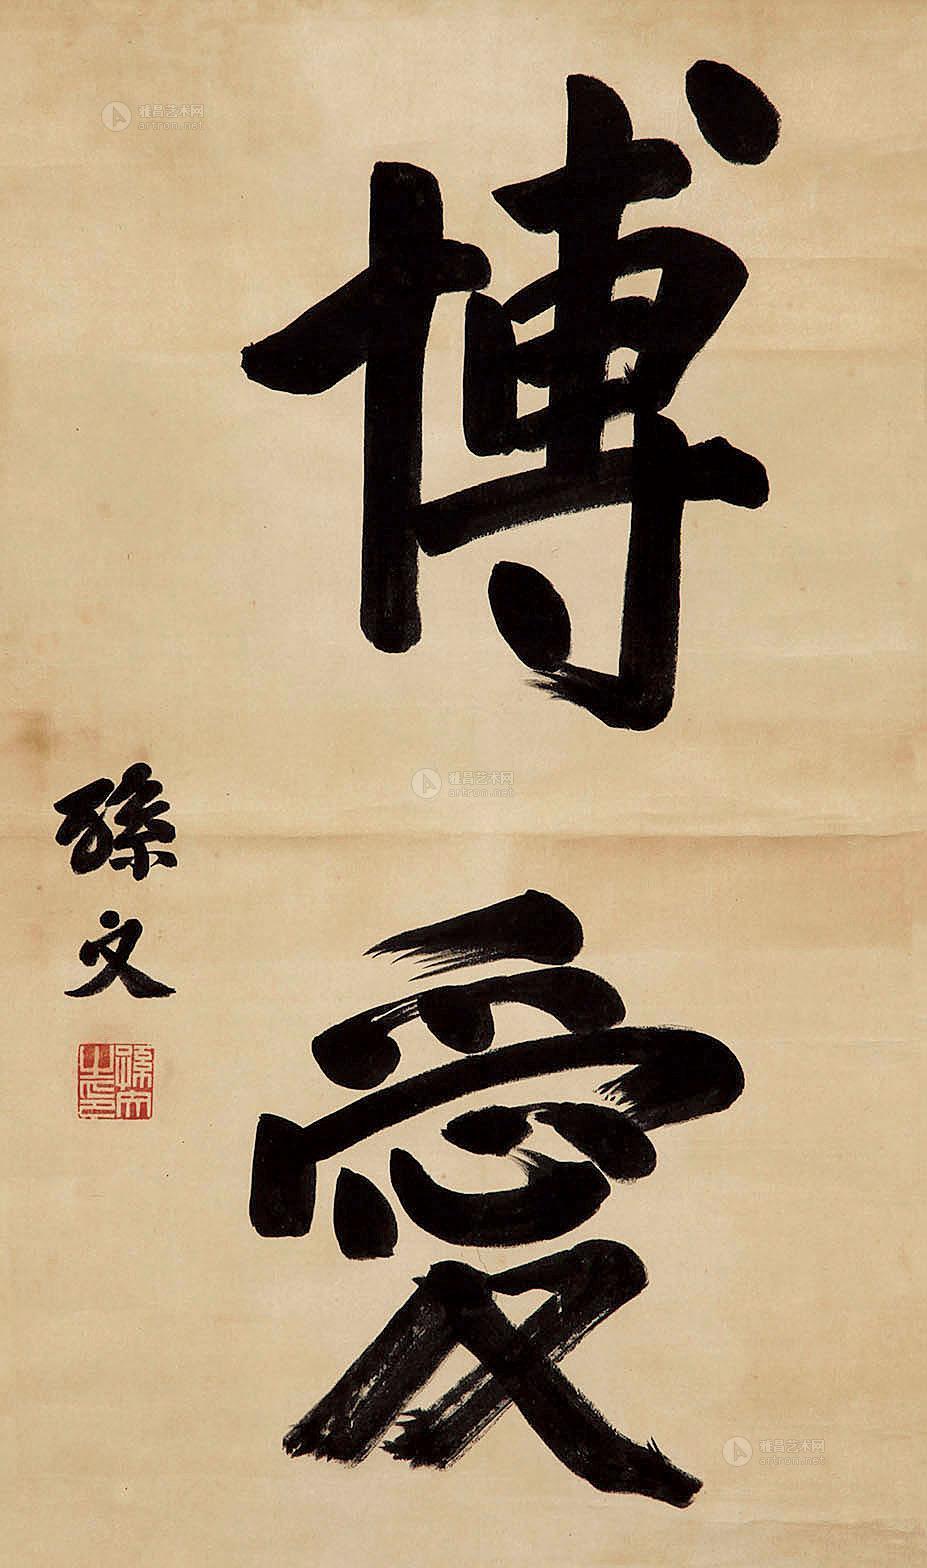 博愛
孫文
孫文之印
雅昌艺术网
artron.net
雅昌艺术网
artron.net
雅昌艺术网
artron.net